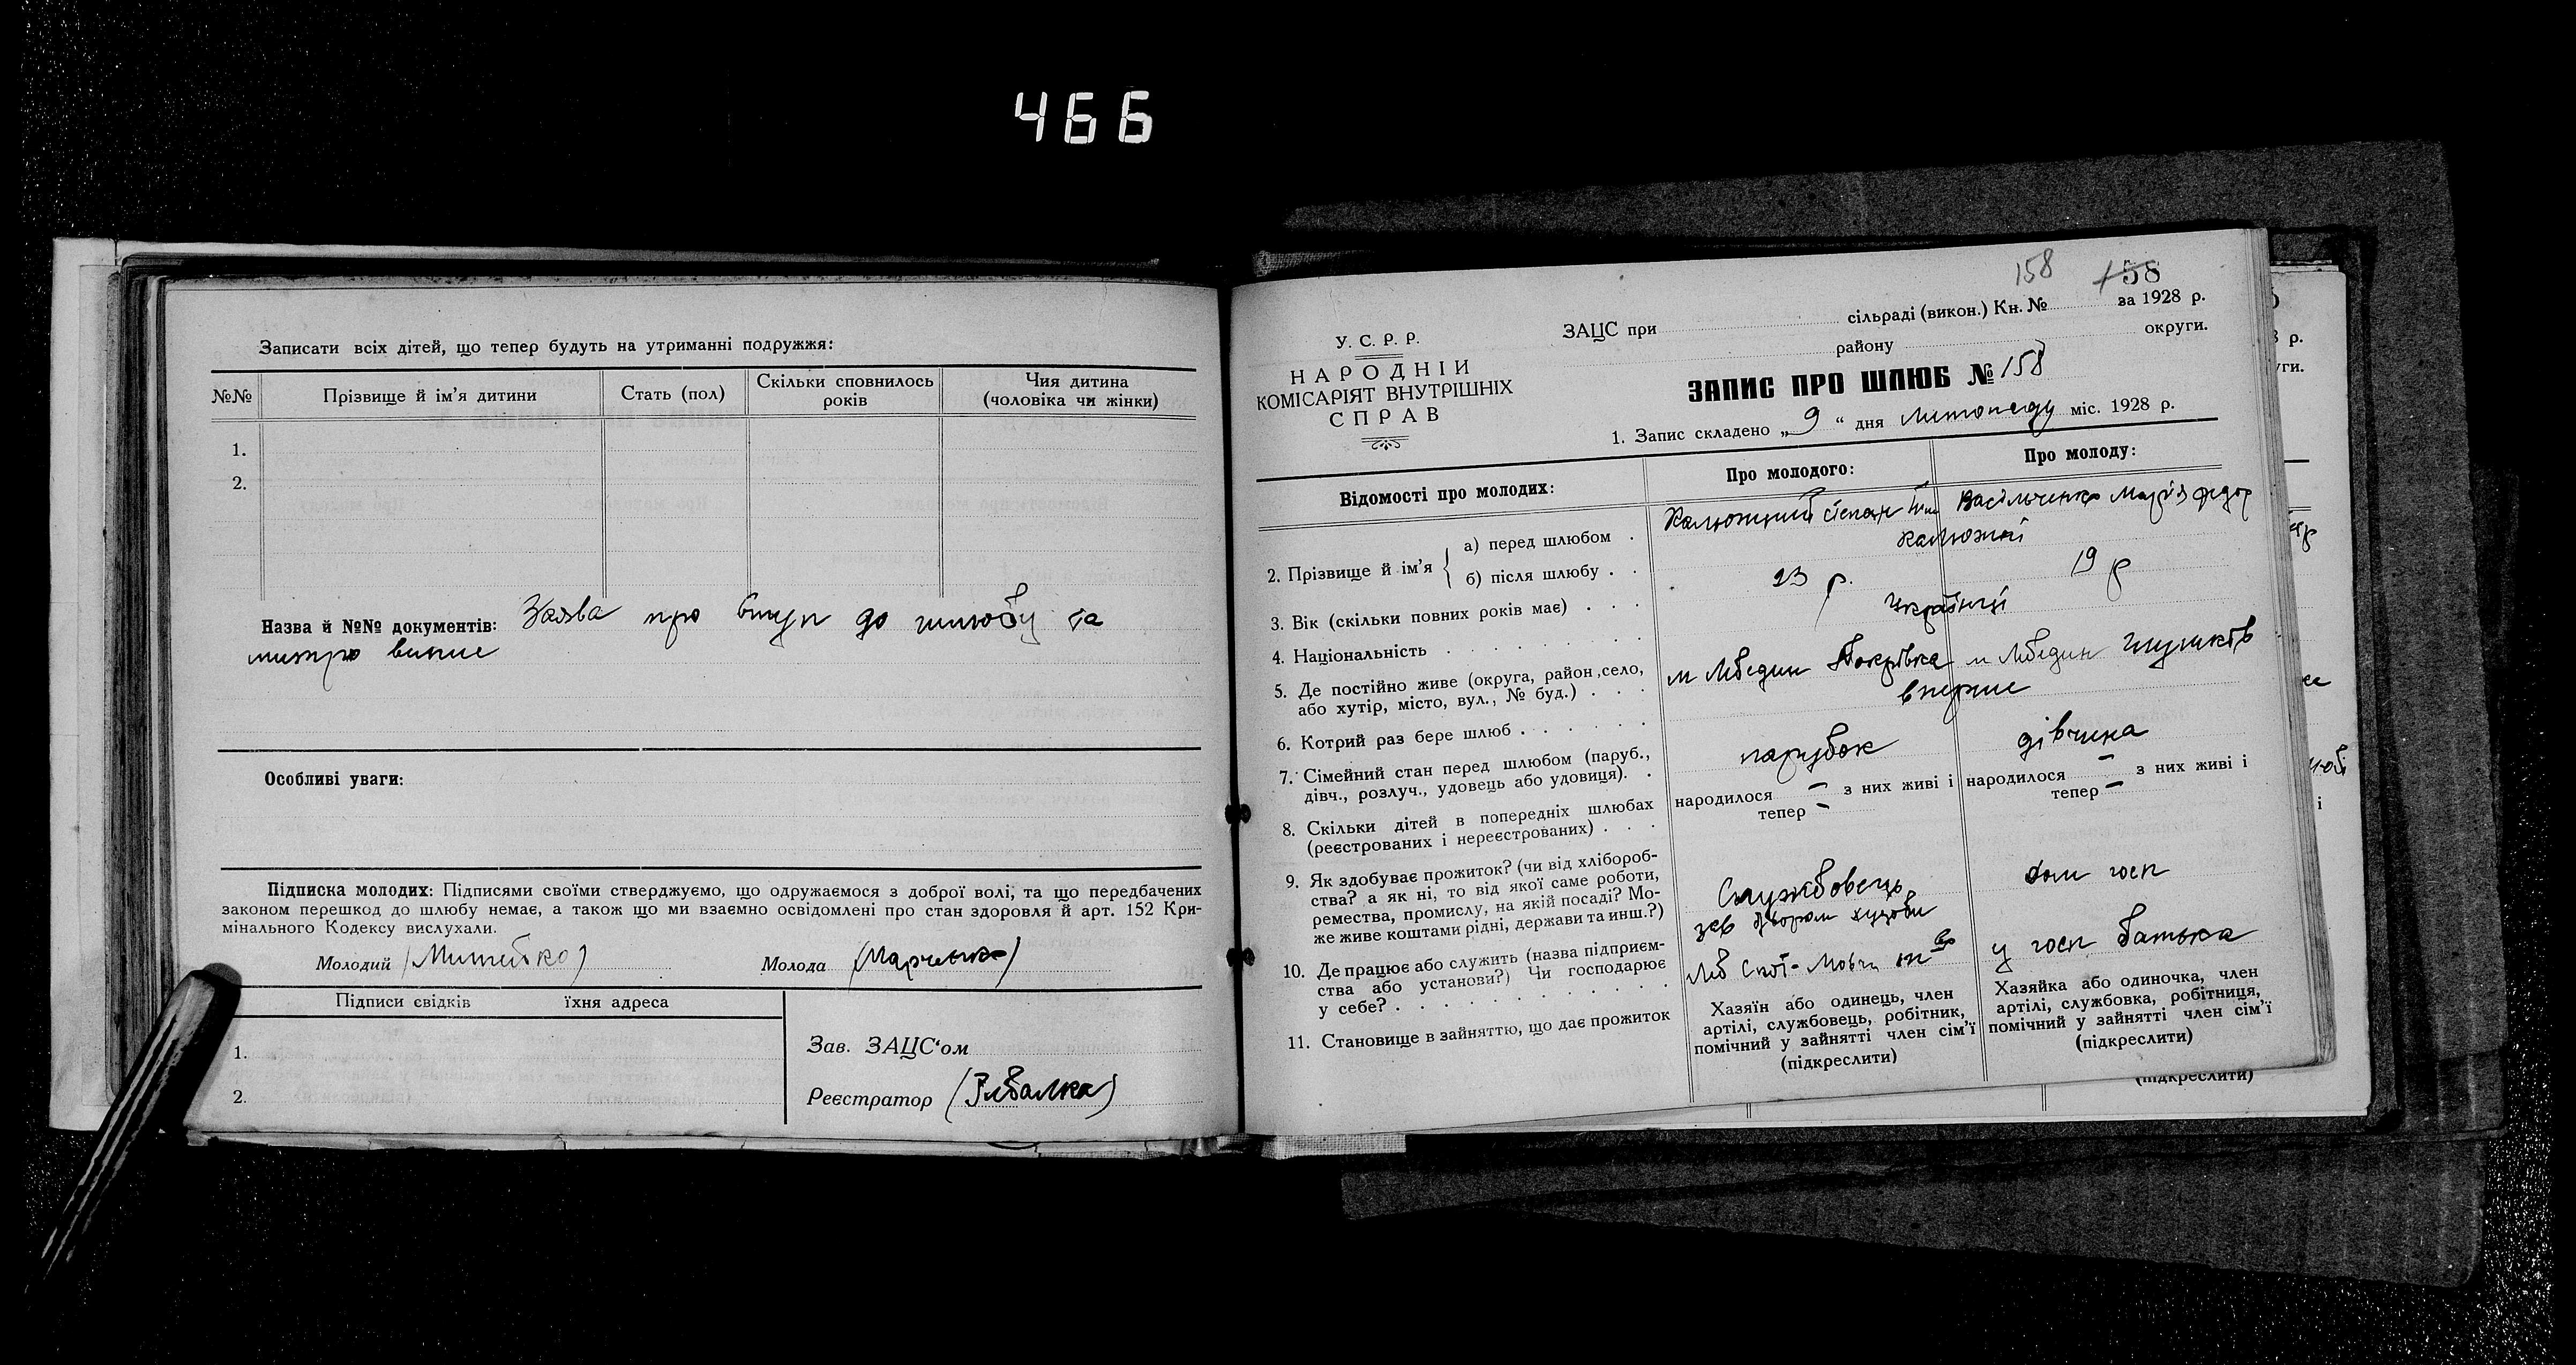 466
Записати всіх дітей, що тепер будуть на утриманні подружжя:
№№ Прізвище й ім'я дитини Стать (пол) Скільки сповнилось років Чия дитина (чоловіка чи жінки)
1.
2.
Назва й №№ документів: Заява про вступ до шлюбу та
Особливі уваги:
Підписка молодих: Підписями своїми стверджуємо, що одружаємося з доброї волі, та що передбачених
законом перешкод до шлюбу немає, а також що ми взаємно освідомлені про стан здоровля й арт. 152 Кри-
мінального Кодексу вислухали.
Молодий (Митейко) Молода (Марченко)
Підписи євідків їхня адреса
1.
2.
Зав. ЗАЦС'ом
Реєстратор
158 158
У. С. Р. Р.
НАРОДНІЙ
КОМІСАРІЯТ ВНУТРІШНІХ
СПРАВ
ЗАЦС при сільраді (викон.) Кн. № за 1928 р.
району округи.
ЗАПИС ПРО ШЛЮБ № 158
1. Запис складено „ 9 “ дня листопаду міс. 1928 р.
Відомості про молодих: Про молодого: Про молоду:
2. Прізвище й ім'я
а) перед шлюбом . Калюжний Степан Васільченко Марія Федор
б) після шлюбу . . Калюжні
3. Вік (скільки повних років має) . . . 23 р. 19 р
4. Національність Українці
5. Де постійно живе (округа, район, село,
або хутір, місто, вул., № буд.) . . . м Лебедин Покрівка м Лебедин
6. Котрий раз бере шлюб . . . вперше
7. Сімейний стан перед шлюбом (паруб.,
дівч., розлуч., удовець або удовиця). . парубок дівчина
8. Скільки дітей в попередніх шлюбах
(реєстрованих і нереєстрованих) . . .
народилося — з них живі і
тепер —
народилося — з них живі і
тепер —
9. Як здобуває прожиток? (чи від хлібороб-
ства? а як ні, то від якої саме роботи,
ремества, промислу, на якій посаді? Мо-
же живе коштами рідні, держави та инш.?)
Службовець
зав двором худоби
дом госп
10. Де працює або служить (назва підприєм-
ства або установи?) Чи господарює
у себе? . . .
Леб
у госп батька
11. Становище в зайняттю, що дає прожиток
Хазяїн або одинець, член
артілі, службовець, робітник,
помічний у зайнятті член сім'ї
(підкреслити)
Хазяйка або одиночка, член
артілі, службовка, робітниця,
помічний у зайнятті член сім'ї
(підкреслити)
(підкреслити)